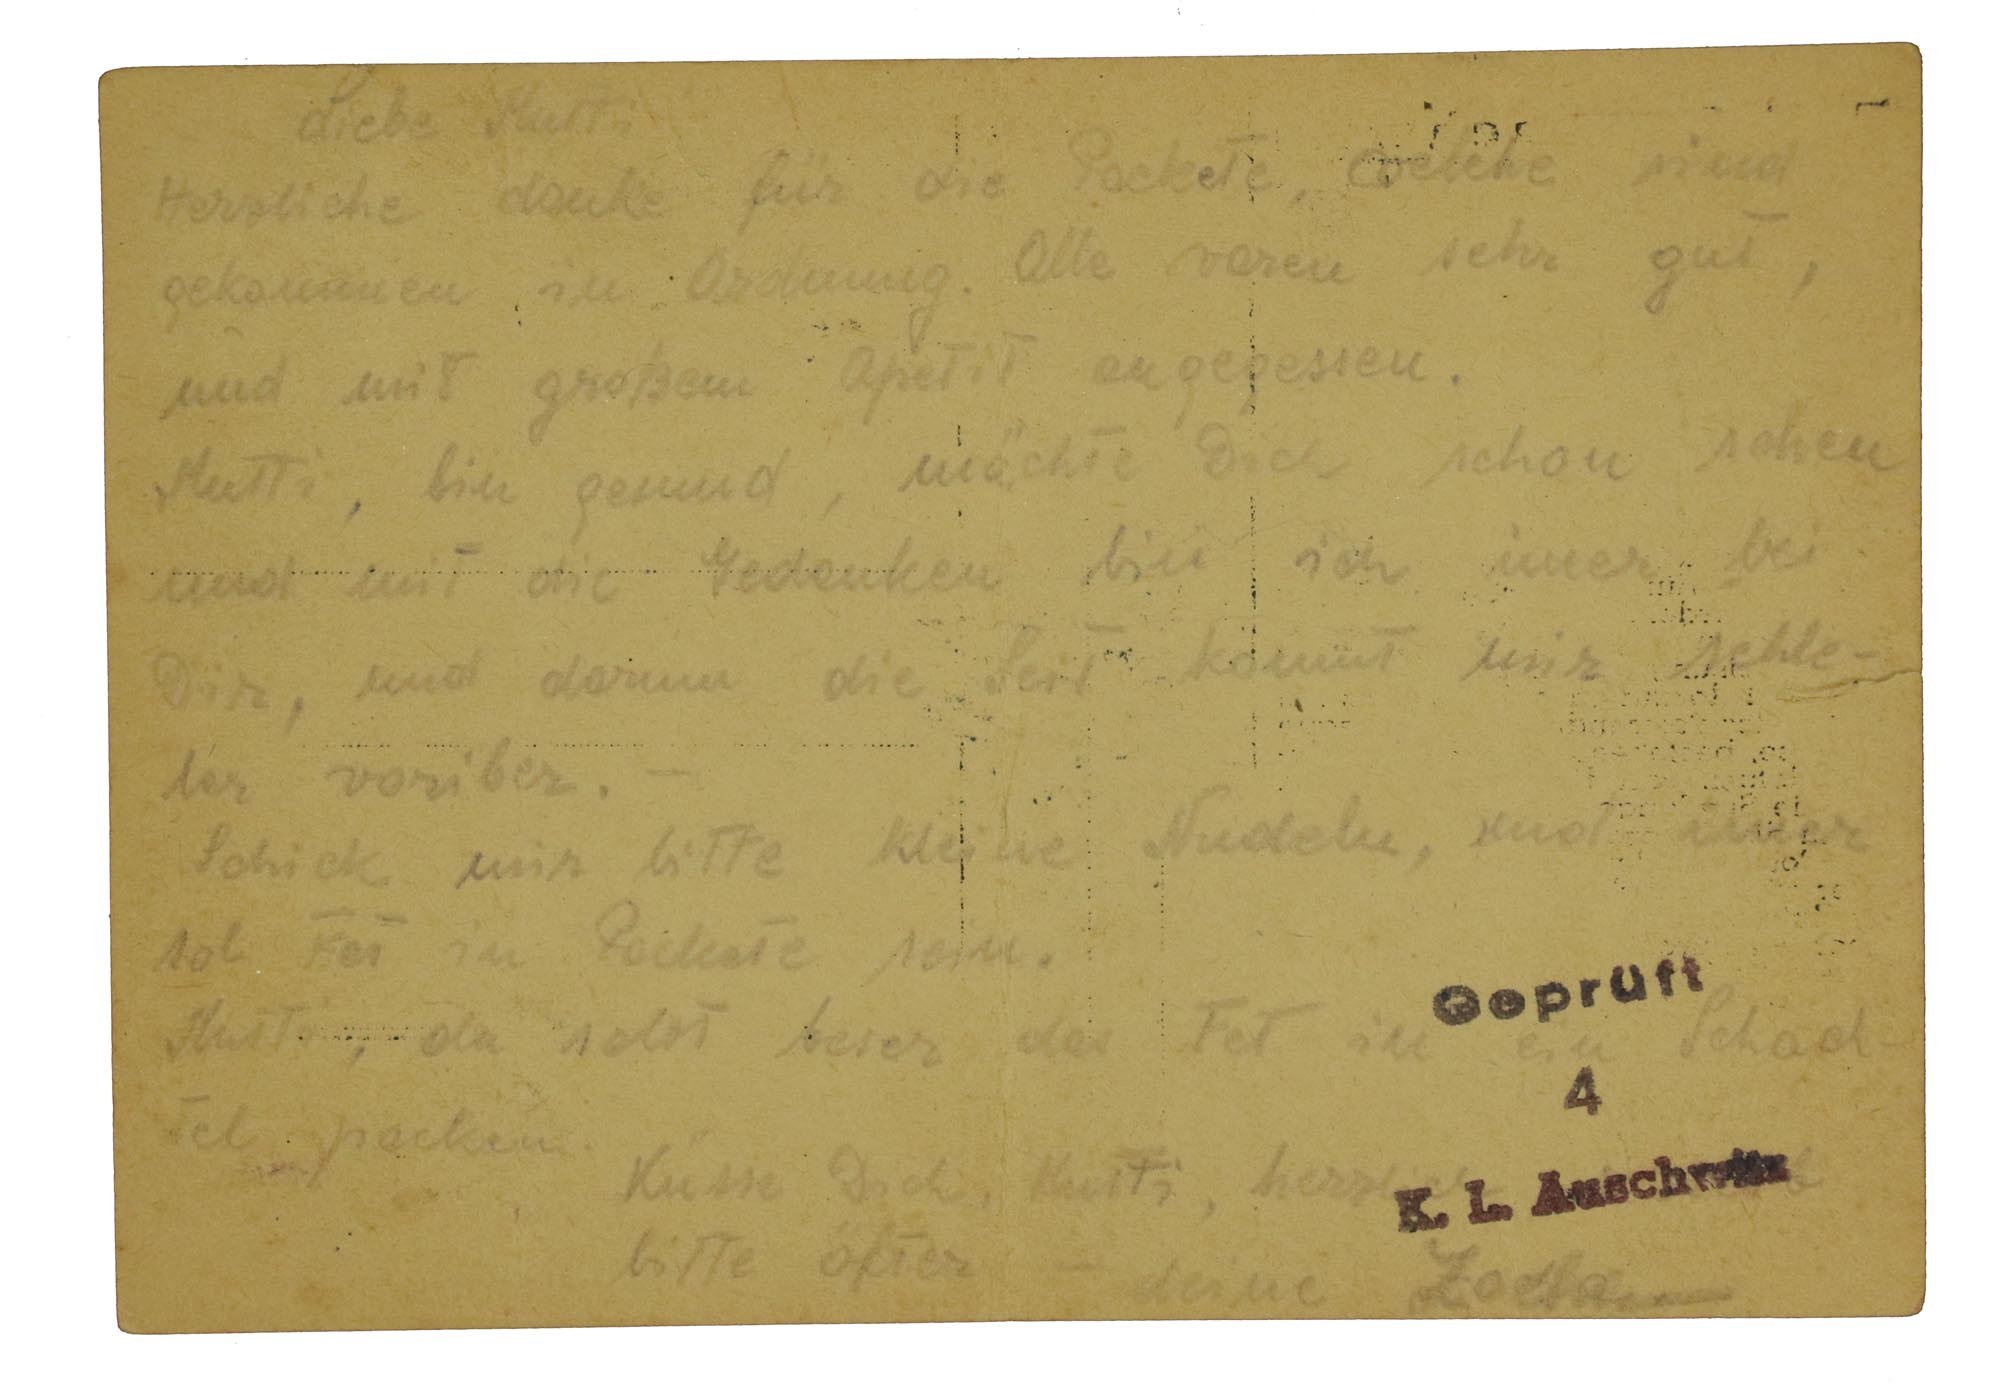 Liebe Mutti
Herzliche danke für die Packete, welche sind
gekommen in Ordnung. Alle varen sehr gut,
und mit großem Apetit angegessen.
Mutti, bin gesund, möchte Dich schon sehen
und mit die Gedanken bin ich imer bei
Dir, und darum die Zeit kommt mir schle-
ter voriber. —
Schick mir bitte kleine Nudeln, und imer
sol Fet in Packete sein.
Mutti, du solst beser das Fet in ein Schach-
tel packen.
Küsse Dich, Mutti, herzlich
bitte öfter — deine Zosia
Geprüft
4
K. L. Auschwitz